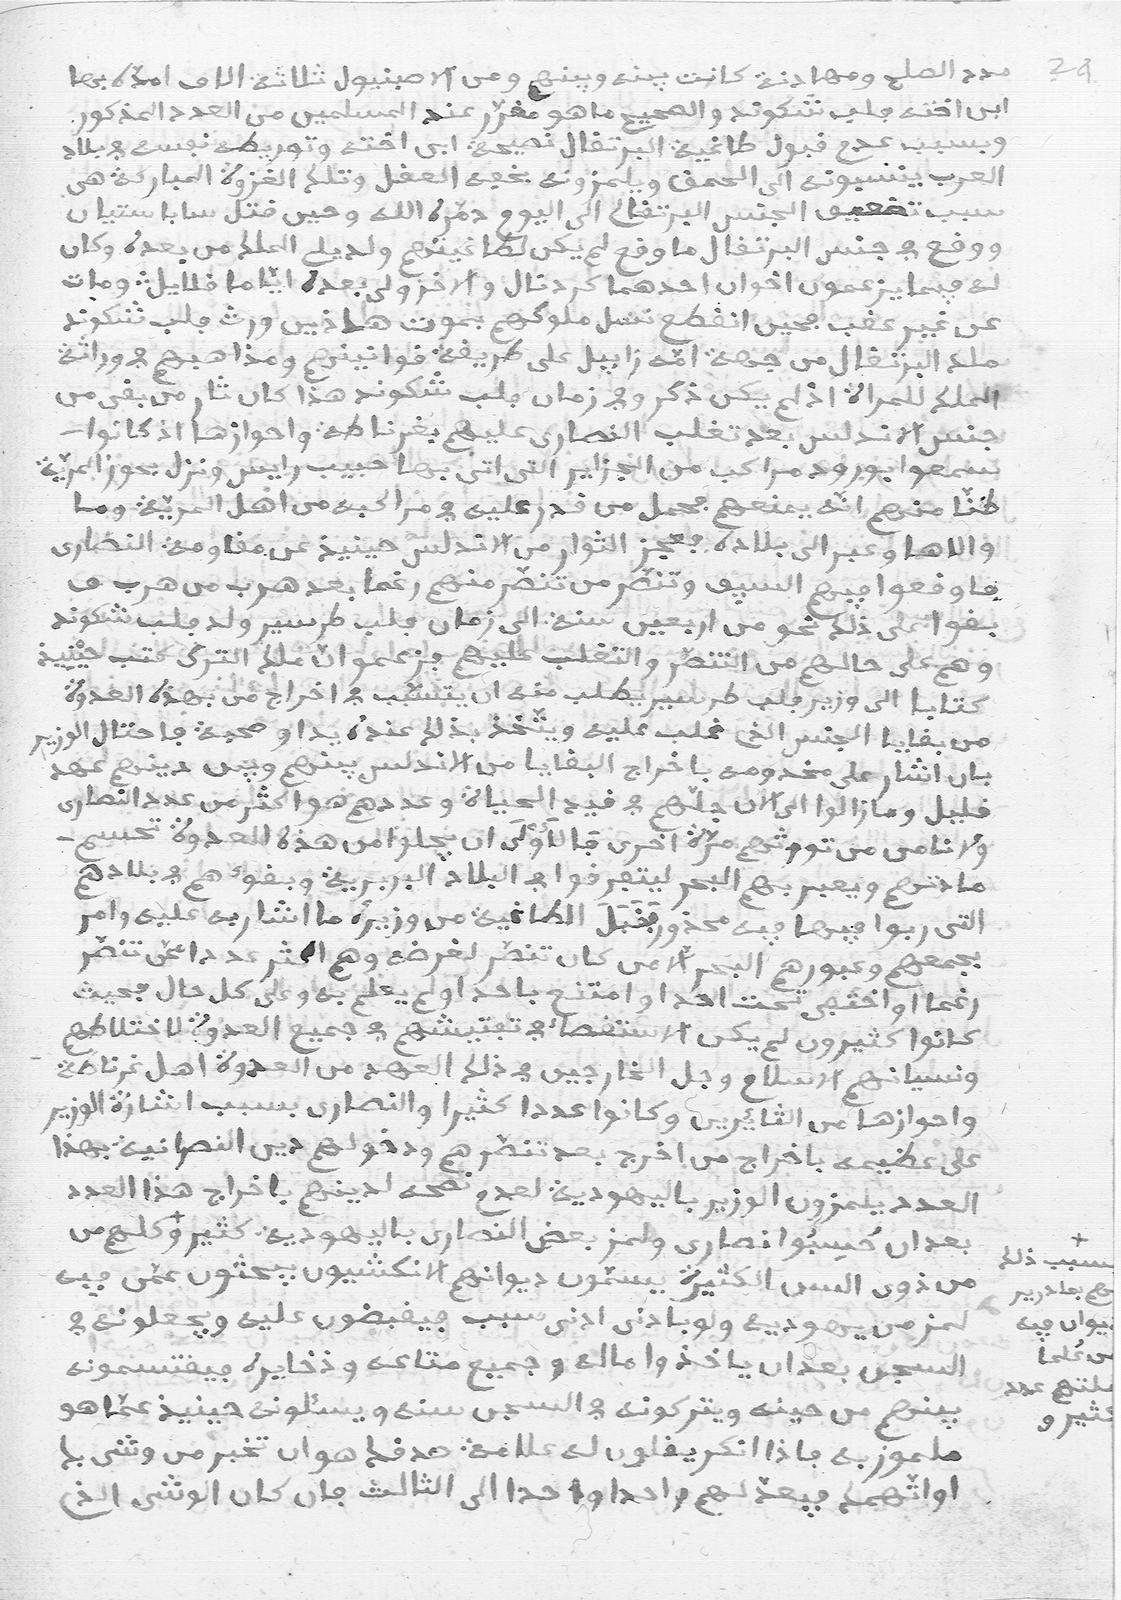 29
مدد الصلح ومهادنة كانت بينه وبينهم ومن الاصبنيول ثلاثة الاف امدّه بها
ابن اخته فلب شكوند والصحيح ما هو مقرّر عند المسلمين من العدد المذكور
وبسبب عدم قبول طاغية البرتقال نصيحة ابن اخته وتوريطه نفسه في بلاد
العرب ينسبونه الى الحمق ويلمزونه بخفة العقل وتلك الغزوة المباركة هى
سبب تضعيف الجنس البرتقال الى اليوم دمّره الله وحين قتل ساباستيان
ووقع في جنس البرتقال ما وقع لم يكن لطاغيتهم ولد يلى الملك من بعده وكان
له فيما يزعمون اخوان احدهما كردنال والاخر ولى بعده ايّاما قلايل ومات
عن غير عقب فحين انقطع نسل ملوكهم بموت هاذين ورث فلب شكوند
ملك البرتقال من جهة امّه زابيل على طريقة قوانينهم ومذاهبهم في وراثة
الملك للمراة اذ لم يكن ذكر وفي زمان فلب شكوند هذا كان ثار من بقى من
جنس الاندلس بعد تغلب النصارى عليهم بغرناطة واحوازها اذ كانوا
سمعوا بورود مراكب من الجزاير التى اتى بها حبيب رايس ونزل بحوز المريّة
ظنّا منهم انّه يمنعهم فحمل من قدر عليه في مراكبه من اهل المريّة وما
والاها وعبر الى بلاده فعجز الثوار من الاندلس حينيذ عن مقاومة النصارى
فاوقعوا فيهم السيف وتنصّر من تنصّر منهم رغما بعد هرب من هرب ف
بقوا على ذلك نحو من اربعين سنة الى زمان فلب طرسير ولد فلب شكوند
وهم على حالهم من التنصّر والتغلب عليهم فزعموا انّ ملك الترك كتب حينيذ
كتابا الى وزير فلب طرسير يطلب منه ان يتسبّب في اخراج من بهذه العدوة
من بقايا الجنس الذى غلب عليه ويتّخذ بذلك عنده يدا وصحبة فاحتال الوزير
بان اشار على مخدومه باخراج البقايا من الاندلس بينهم وبين دينهم عهد
قليل وما زالوا الى الان جلّهم في قيد الحياة وعددهم هو اكثر من عدد النصارى
ولا نامن من تورثهم مرّة اخرى فالاولى ان يجلوا من هذه العدوة تحسم
مادتهم ويعبر بهم البحر ليتفرقوا في البلاد البربرية وبقوهم في بلادهم
التى ربوا فيها فيه محذور فَقَبِلَ الطاغية من وزيره ما اشار به عليه وامر
بجمعهم وعبورهم البحر الا من كان تنصّر لغرضه وهم اكثر عددا عمّن تنصّر
رغما او اختفى تحت احد او امتنع باحد او لم يعلم به وعلى كل حال فحيث
كانوا كثيرون لم يكن الاستقصاء في تفتيشهم في جميع العدوة لاختلاطهم
ونسيانهم الاسلام وجل الخارجين في ذلك العهد من العدوة اهل غرناطة
واحوازها من الثائرين وكانوا عددا كثيرا والنصارى بسبب اشارة الوزير
على عظيمه باخراج من اخرج بعد تنصّرهم ودخولهم دين النصرانية بهذا
العدد يلمزون الوزير باليهودية لعدم نصحه لدينهم باخراج هذا العدد
بعد ان حُسِبُوا نصارى ولمز بعض النصارى باليهودية كثير وكلهم من
من ذوى السن الكثيرة يسمّون ديوانهم الانكشيون يبحثون عمّن فيه
لمز من يهودية ولو بادنى ادنى سبب فيقبضون عليه ويجعلونه في
السجن بعد ان ياخذوا ماله وجميع متاعه وذخايره فيقتسمونه
بينهم من حينه ويتركونه في السجن سنة ويسئلونه حينيذ عمّا هو
ملموز به فاذا انكر يقلون له علامة صدقك هو ان تخبر من وشى بك
او اتّهمك فيعدّ لهم واحدا واحدا الى الثالث فان كان الوشى الذى
بسبب ذلك
ديوان فيه
عدد
كثير و